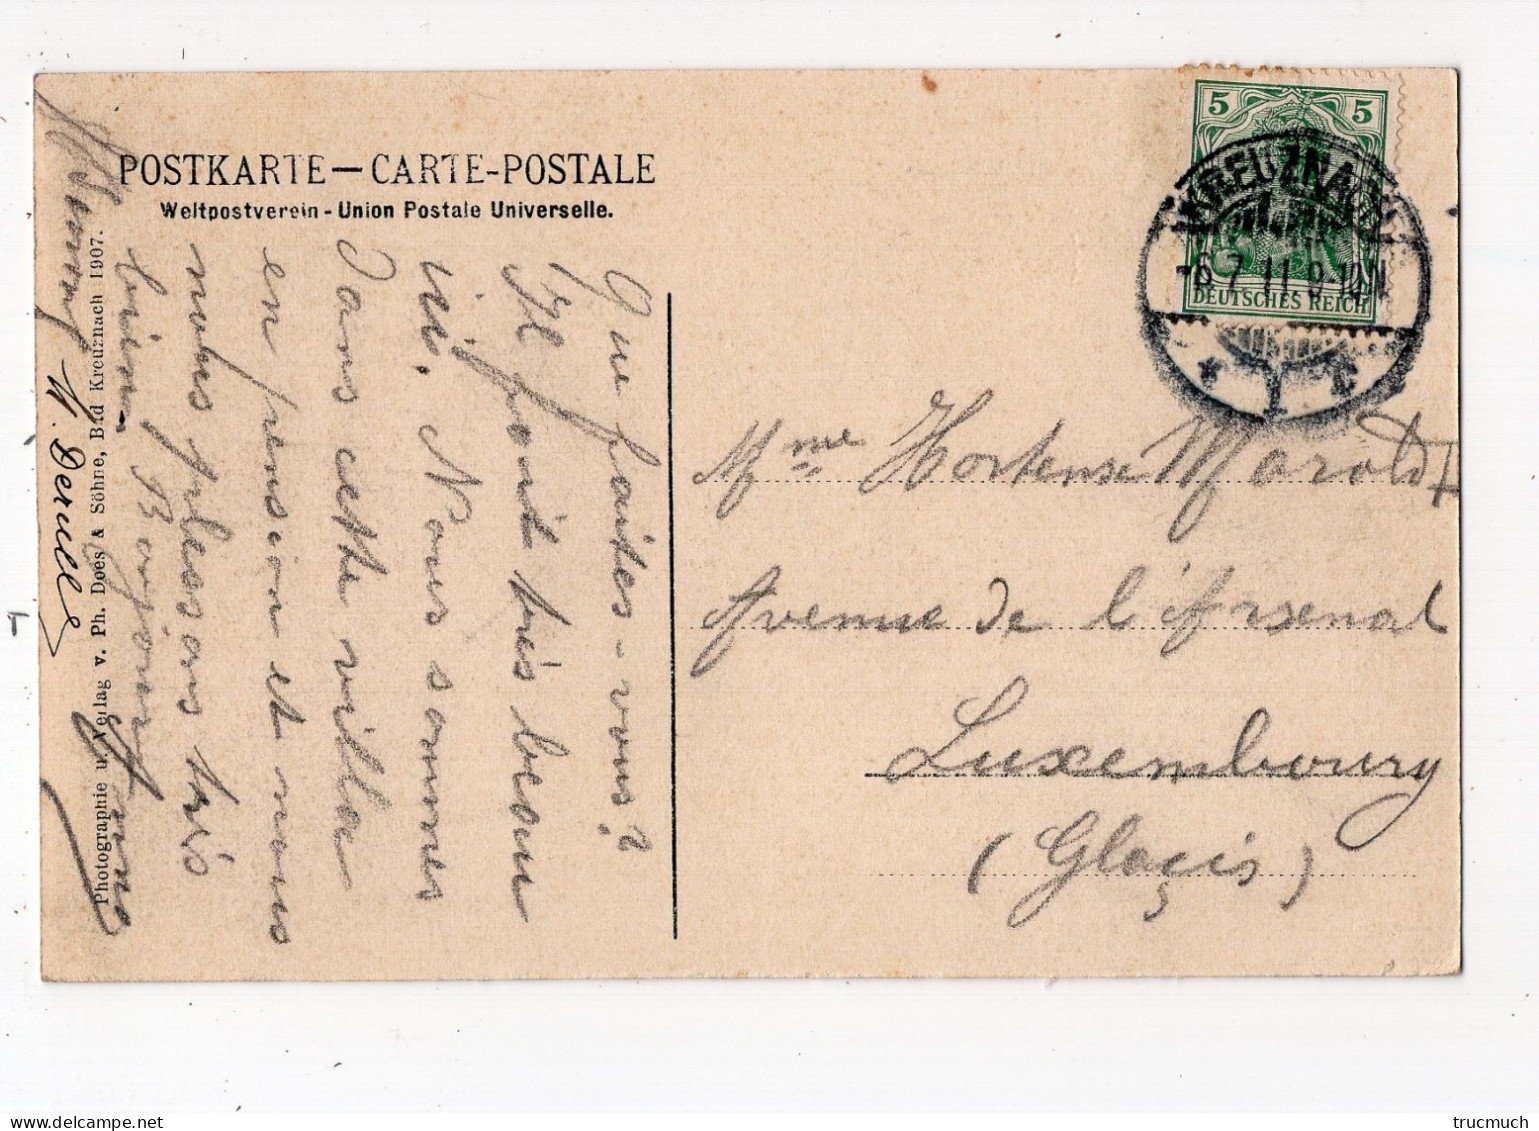 POSTKARTE — CARTE-POSTALE
Weltpostverein - Union Postale Universelle.
5 5
KREUZNACH
-6.7.11.9-10N
DEUTSCHES REICH
Que faites-vous?
Il fait très beau
ici. Nous sommes
dans cette villa
en pension et nous
nous plaisons très
bien. Bonjour
Photographie u. Verlag v. Ph. Does & Söhne, Bad Kreuznach 1907.
Mme Hortense Maroldt
Avenue de l'Arsenal
Luxembourg
(Glacis)
trucmuch